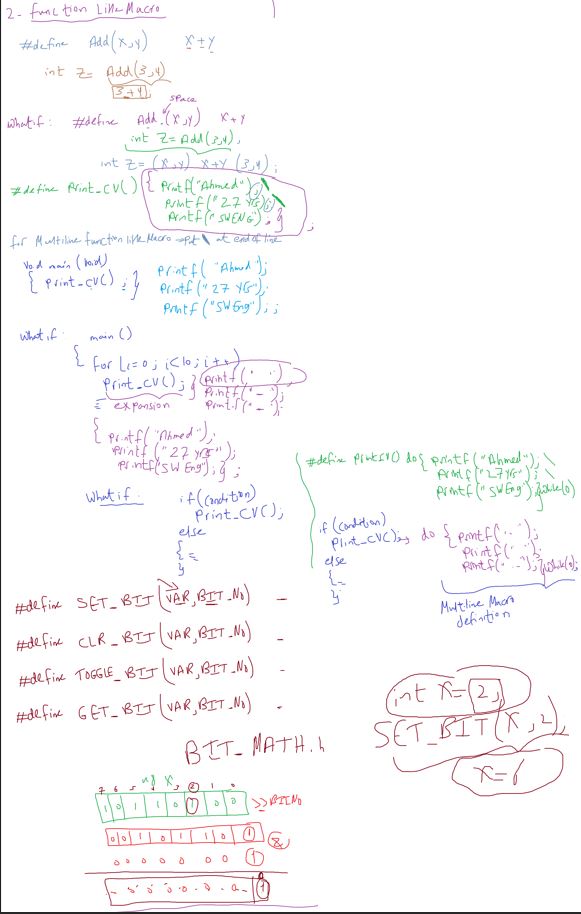 2- Function Like Macro
#define Add(X,Y) X+Y
int Z= Add(3,4)
3+4,
space
what if: #define Add (X,Y) X+Y
int Z= Add(3,4);
int Z= (X,Y) X+Y (3,4);
#define Print_CV() { Printf("Ahmed"); \
Printf("27 yrs); \
Printf("SWENG"); } ;
for Multiline function like Macro → Put \ at end of line
void main (void)
{ Print_CV(); }
Printf( "Ahmed");
Printf("27 yrs");
Printf("SWEng");;
what if: main()
{ for(i=0; i<10; i++)
Print_CV(); }
expansion
Printf("
Printf("-");
Printf("-");
{ Printf("Ahmed");
Printf("27 yrs");
Printf("SWEng"); };
What if: if (condition)
Print_CV();
else
{ =
}
#define Print() do{ Printf("Ahmed"); \
Printf("27yrs"; \
Printf("SWEng");}while(0)
if (condition)
Print_CV();
else
{ -
}
do { Printf("..");
Printf("..");
Printf("..");}while(0);
Multiline Macro
definition
#define SET_BIT(VAR,BIT_No) -
#define CLR_BIT(VAR,BIT_No) -
#define TOGGLE_BIT(VAR,BIT_No) -
#define GET_BIT(VAR,BIT_No) -
int X= 2,
SET_BIT(X,2),
X=6
BIT_MATH.h
u8 X
7 6 5 4 3 2 1 0
1 0 1 1 0 1 0 0 >>BITNo
0 0 1 0 1 1 0 1 &
0 0 0 0 0 0 0 1
1